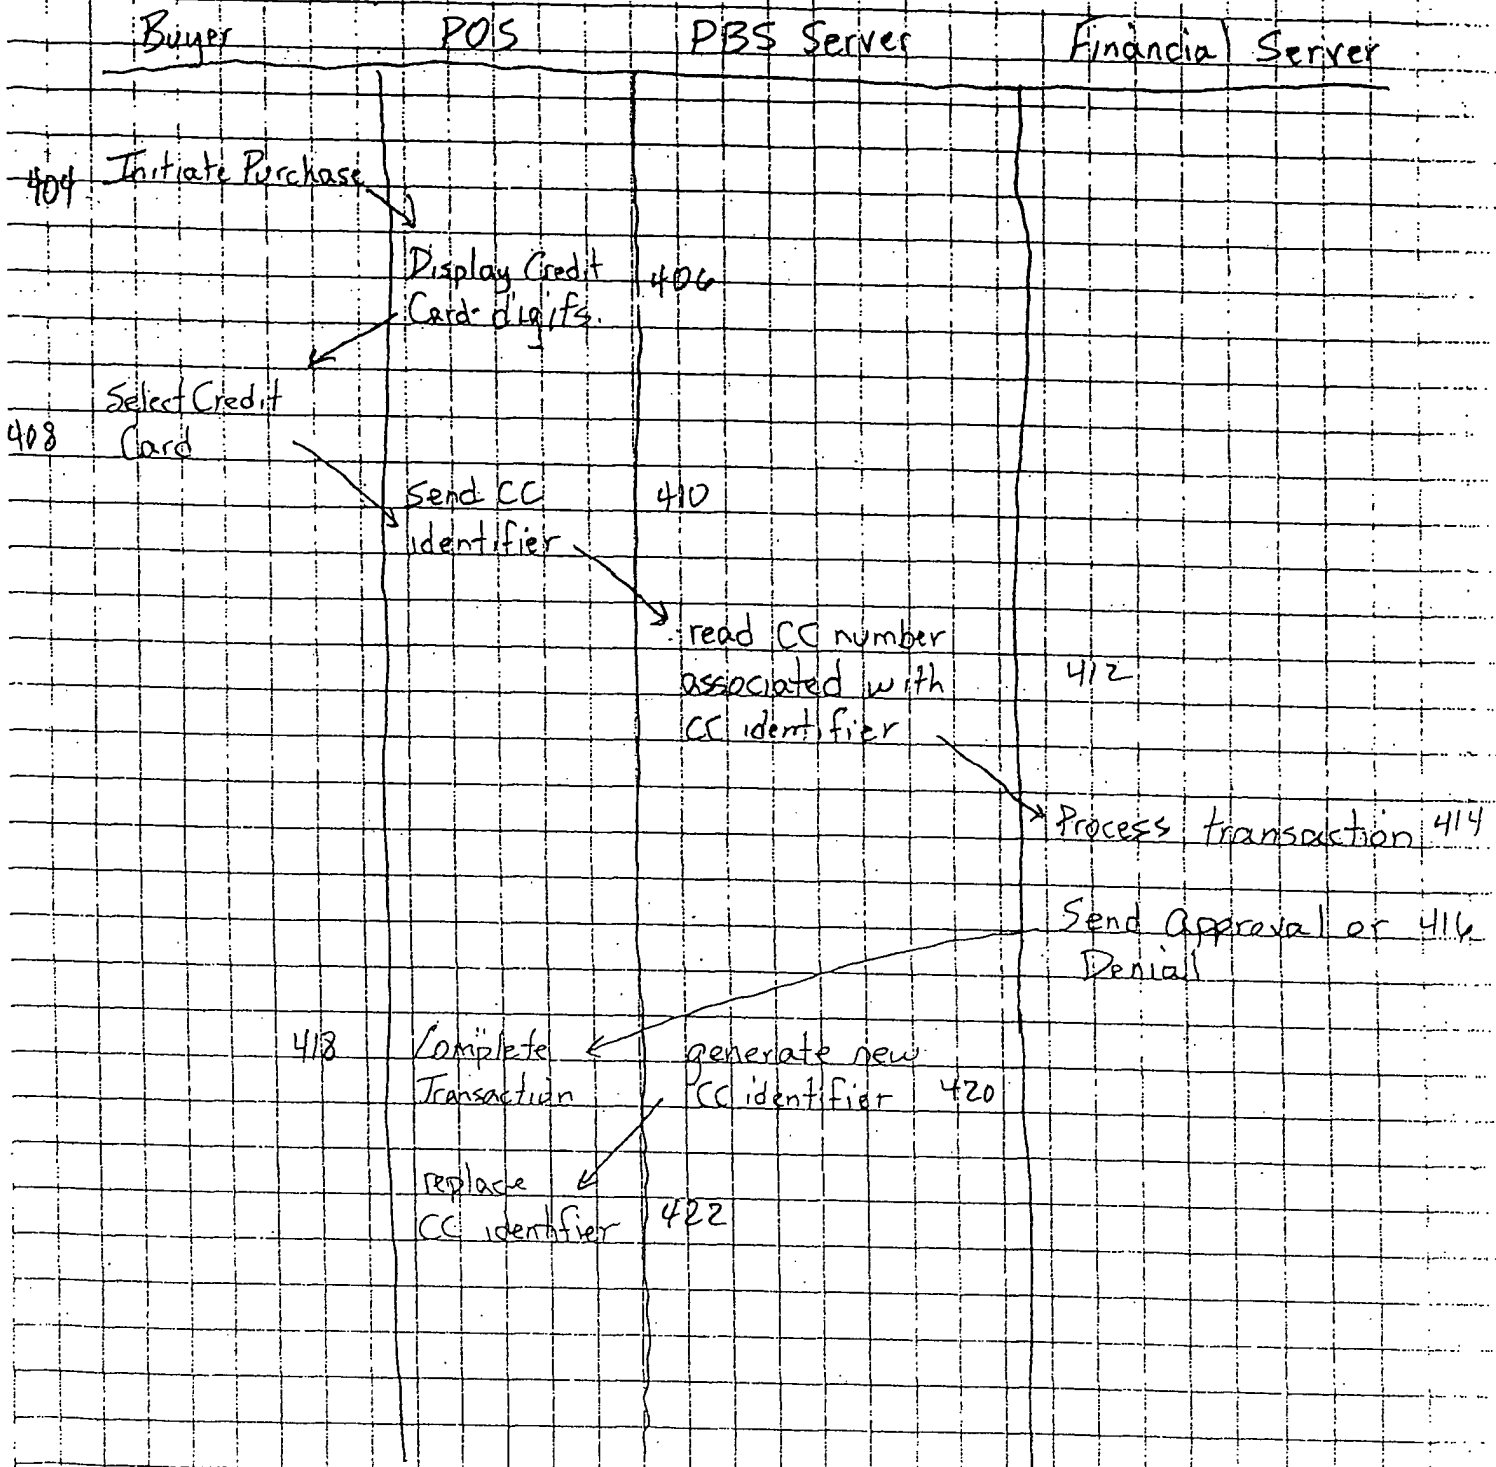 Buyer POS PBS Server Financial Server
404 Initiate Purchase
Display Credit 406
Card digits.
Select Credit
408 Card
Send CC 410
identifier
read CC number
associated with 412
CC identifier
Process transaction 414
Send Approval or 416
Denial
418 Complete generate new
Transaction CC identifier 420
replace
CC identifier 422